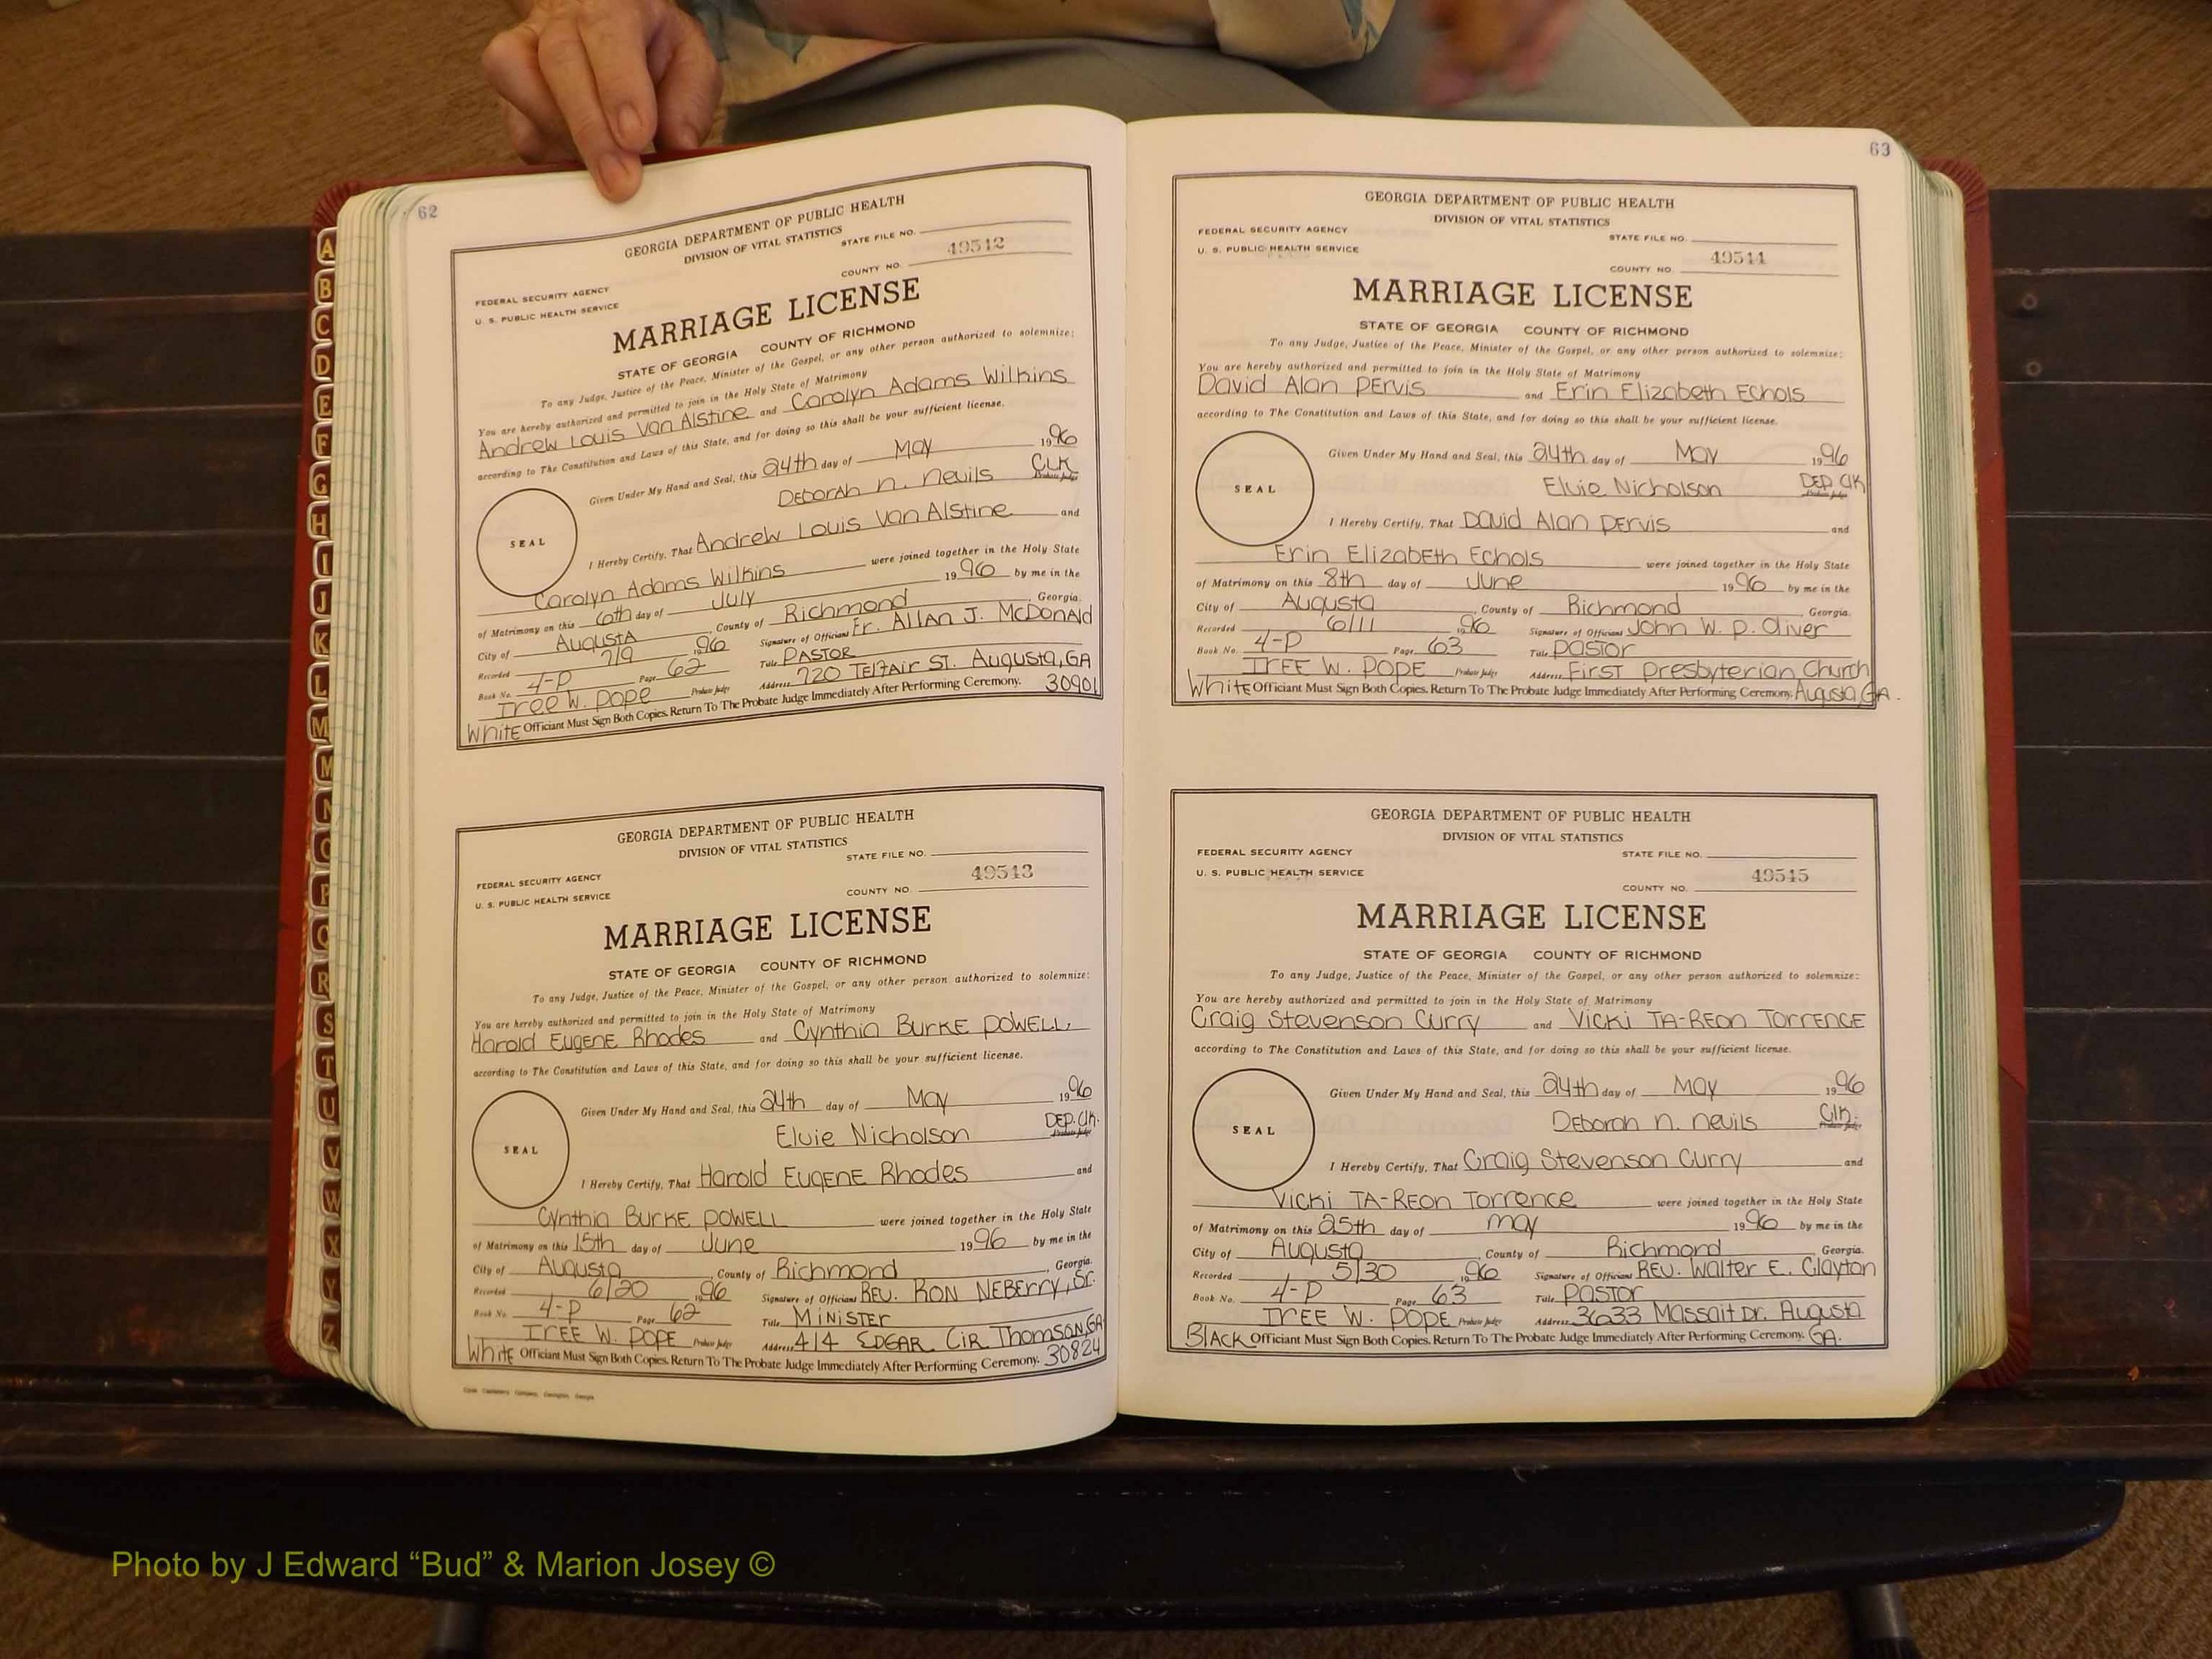 A
B
C
D
E
F
G
H
I
J
K
L
M
M
N
O
P
Q
R
S
T
U
V
W
X
Y
Z
62
GEORGIA DEPARTMENT OF PUBLIC HEALTH
DIVISION OF VITAL STATISTICS
STATE FILE NO.
49512
COUNTY NO.
FEDERAL SECURITY AGENCY
U. S. PUBLIC HEALTH SERVICE
MARRIAGE LICENSE
STATE OF GEORGIA COUNTY OF RICHMOND
To any Judge, Justice of the Peace, Minister of the Gospel, or any other person authorized to solemnize:
You are hereby authorized and permitted to join in the Holy State of Matrimony
Andrew Louis Van Alstine and Carolyn Adams Wilkins
according to The Constitution and Laws of this State, and for doing so this shall be your sufficient license.
Given Under My Hand and Seal, this 24th day of May 1996
Deborah N. Nevils CLK
Probate Judge
SEAL
I Hereby Certify, That Andrew Louis Van Alstine and
Carolyn Adams Wilkins were joined together in the Holy State
of Matrimony on this 6th day of July 1996 by me in the
City of Augusta County of Richmond, Georgia.
Recorded 7/9 1996 Signature of Officiant Fr. Allan J. McDonald
Book No. 4-P Page 62 Title Pastor
Tree W. Pope Probate Judge Address 720 Telfair St. Augusta, GA
White Officiant Must Sign Both Copies. Return To The Probate Judge Immediately After Performing Ceremony. 30901
GEORGIA DEPARTMENT OF PUBLIC HEALTH
DIVISION OF VITAL STATISTICS
STATE FILE NO.
FEDERAL SECURITY AGENCY
49513
U. S. PUBLIC HEALTH SERVICE
COUNTY NO.
MARRIAGE LICENSE
STATE OF GEORGIA COUNTY OF RICHMOND
To any Judge, Justice of the Peace, Minister of the Gospel, or any other person authorized to solemnize:
You are hereby authorized and permitted to join in the Holy State of Matrimony
Harold Eugene Rhodes and Cynthia Burke Powell
according to The Constitution and Laws of this State, and for doing so this shall be your sufficient license.
Given Under My Hand and Seal, this 24th day of May 1996
Elvie Nicholson DEP. Clk.
Probate Judge
SEAL
I Hereby Certify, That Harold Eugene Rhodes and
Cynthia Burke Powell were joined together in the Holy State
of Matrimony on this 15th day of June 1996 by me in the
City of Augusta, County of Richmond, Georgia.
Recorded 6/20 1996 Signature of Officiant Rev. Ron Neberry, Sr.
Book No. 4-P Page 62 Title Minister
Tree W. Pope Probate Judge Address 414 Edgar Cir Thomson, GA
White Officiant Must Sign Both Copies. Return To The Probate Judge Immediately After Performing Ceremony. 30824
63
GEORGIA DEPARTMENT OF PUBLIC HEALTH
DIVISION OF VITAL STATISTICS
FEDERAL SECURITY AGENCY
STATE FILE NO.
U. S. PUBLIC HEALTH SERVICE
49514
COUNTY NO.
MARRIAGE LICENSE
STATE OF GEORGIA COUNTY OF RICHMOND
To any Judge, Justice of the Peace, Minister of the Gospel, or any other person authorized to solemnize:
You are hereby authorized and permitted to join in the Holy State of Matrimony
David Alan Pervis and Erin Elizabeth Echols
according to The Constitution and Laws of this State, and for doing so this shall be your sufficient license.
Given Under My Hand and Seal, this 24th day of May 1996
Elvie Nicholson DEP. Clk
Probate Judge
SEAL
I Hereby Certify, That David Alan Pervis and
Erin Elizabeth Echols were joined together in the Holy State
of Matrimony on this 8th day of June 1996 by me in the
City of Augusta, County of Richmond, Georgia.
Recorded 6/11 1996 Signature of Officiant John W. P. Oliver
Book No. 4-P Page 63 Title Pastor
Tree W. Pope Probate Judge Address First Presbyterian Church
White Officiant Must Sign Both Copies. Return To The Probate Judge Immediately After Performing Ceremony. Augusta, GA.
GEORGIA DEPARTMENT OF PUBLIC HEALTH
DIVISION OF VITAL STATISTICS
FEDERAL SECURITY AGENCY
STATE FILE NO.
U. S. PUBLIC HEALTH SERVICE
49515
COUNTY NO.
MARRIAGE LICENSE
STATE OF GEORGIA COUNTY OF RICHMOND
To any Judge, Justice of the Peace, Minister of the Gospel, or any other person authorized to solemnize:
You are hereby authorized and permitted to join in the Holy State of Matrimony
Craig Stevenson Curry and Vicki TA-REon Torrence
according to The Constitution and Laws of this State, and for doing so this shall be your sufficient license.
Given Under My Hand and Seal, this 24th day of May 1996
Deborah N. Nevils Clk.
Probate Judge
SEAL
I Hereby Certify, That Craig Stevenson Curry and
Vicki TA-REon Torrence were joined together in the Holy State
of Matrimony on this 25th day of May 1996 by me in the
City of Augusta, County of Richmond, Georgia.
Recorded 5/30 1996 Signature of Officiant Rev. Walter E. Clayton
Book No. 4-P Page 63 Title Pastor
Tree W. Pope Probate Judge Address 3633 Massait Dr. Augusta
Black Officiant Must Sign Both Copies. Return To The Probate Judge Immediately After Performing Ceremony. GA.
Photo by J Edward “Bud” & Marion Josey ©